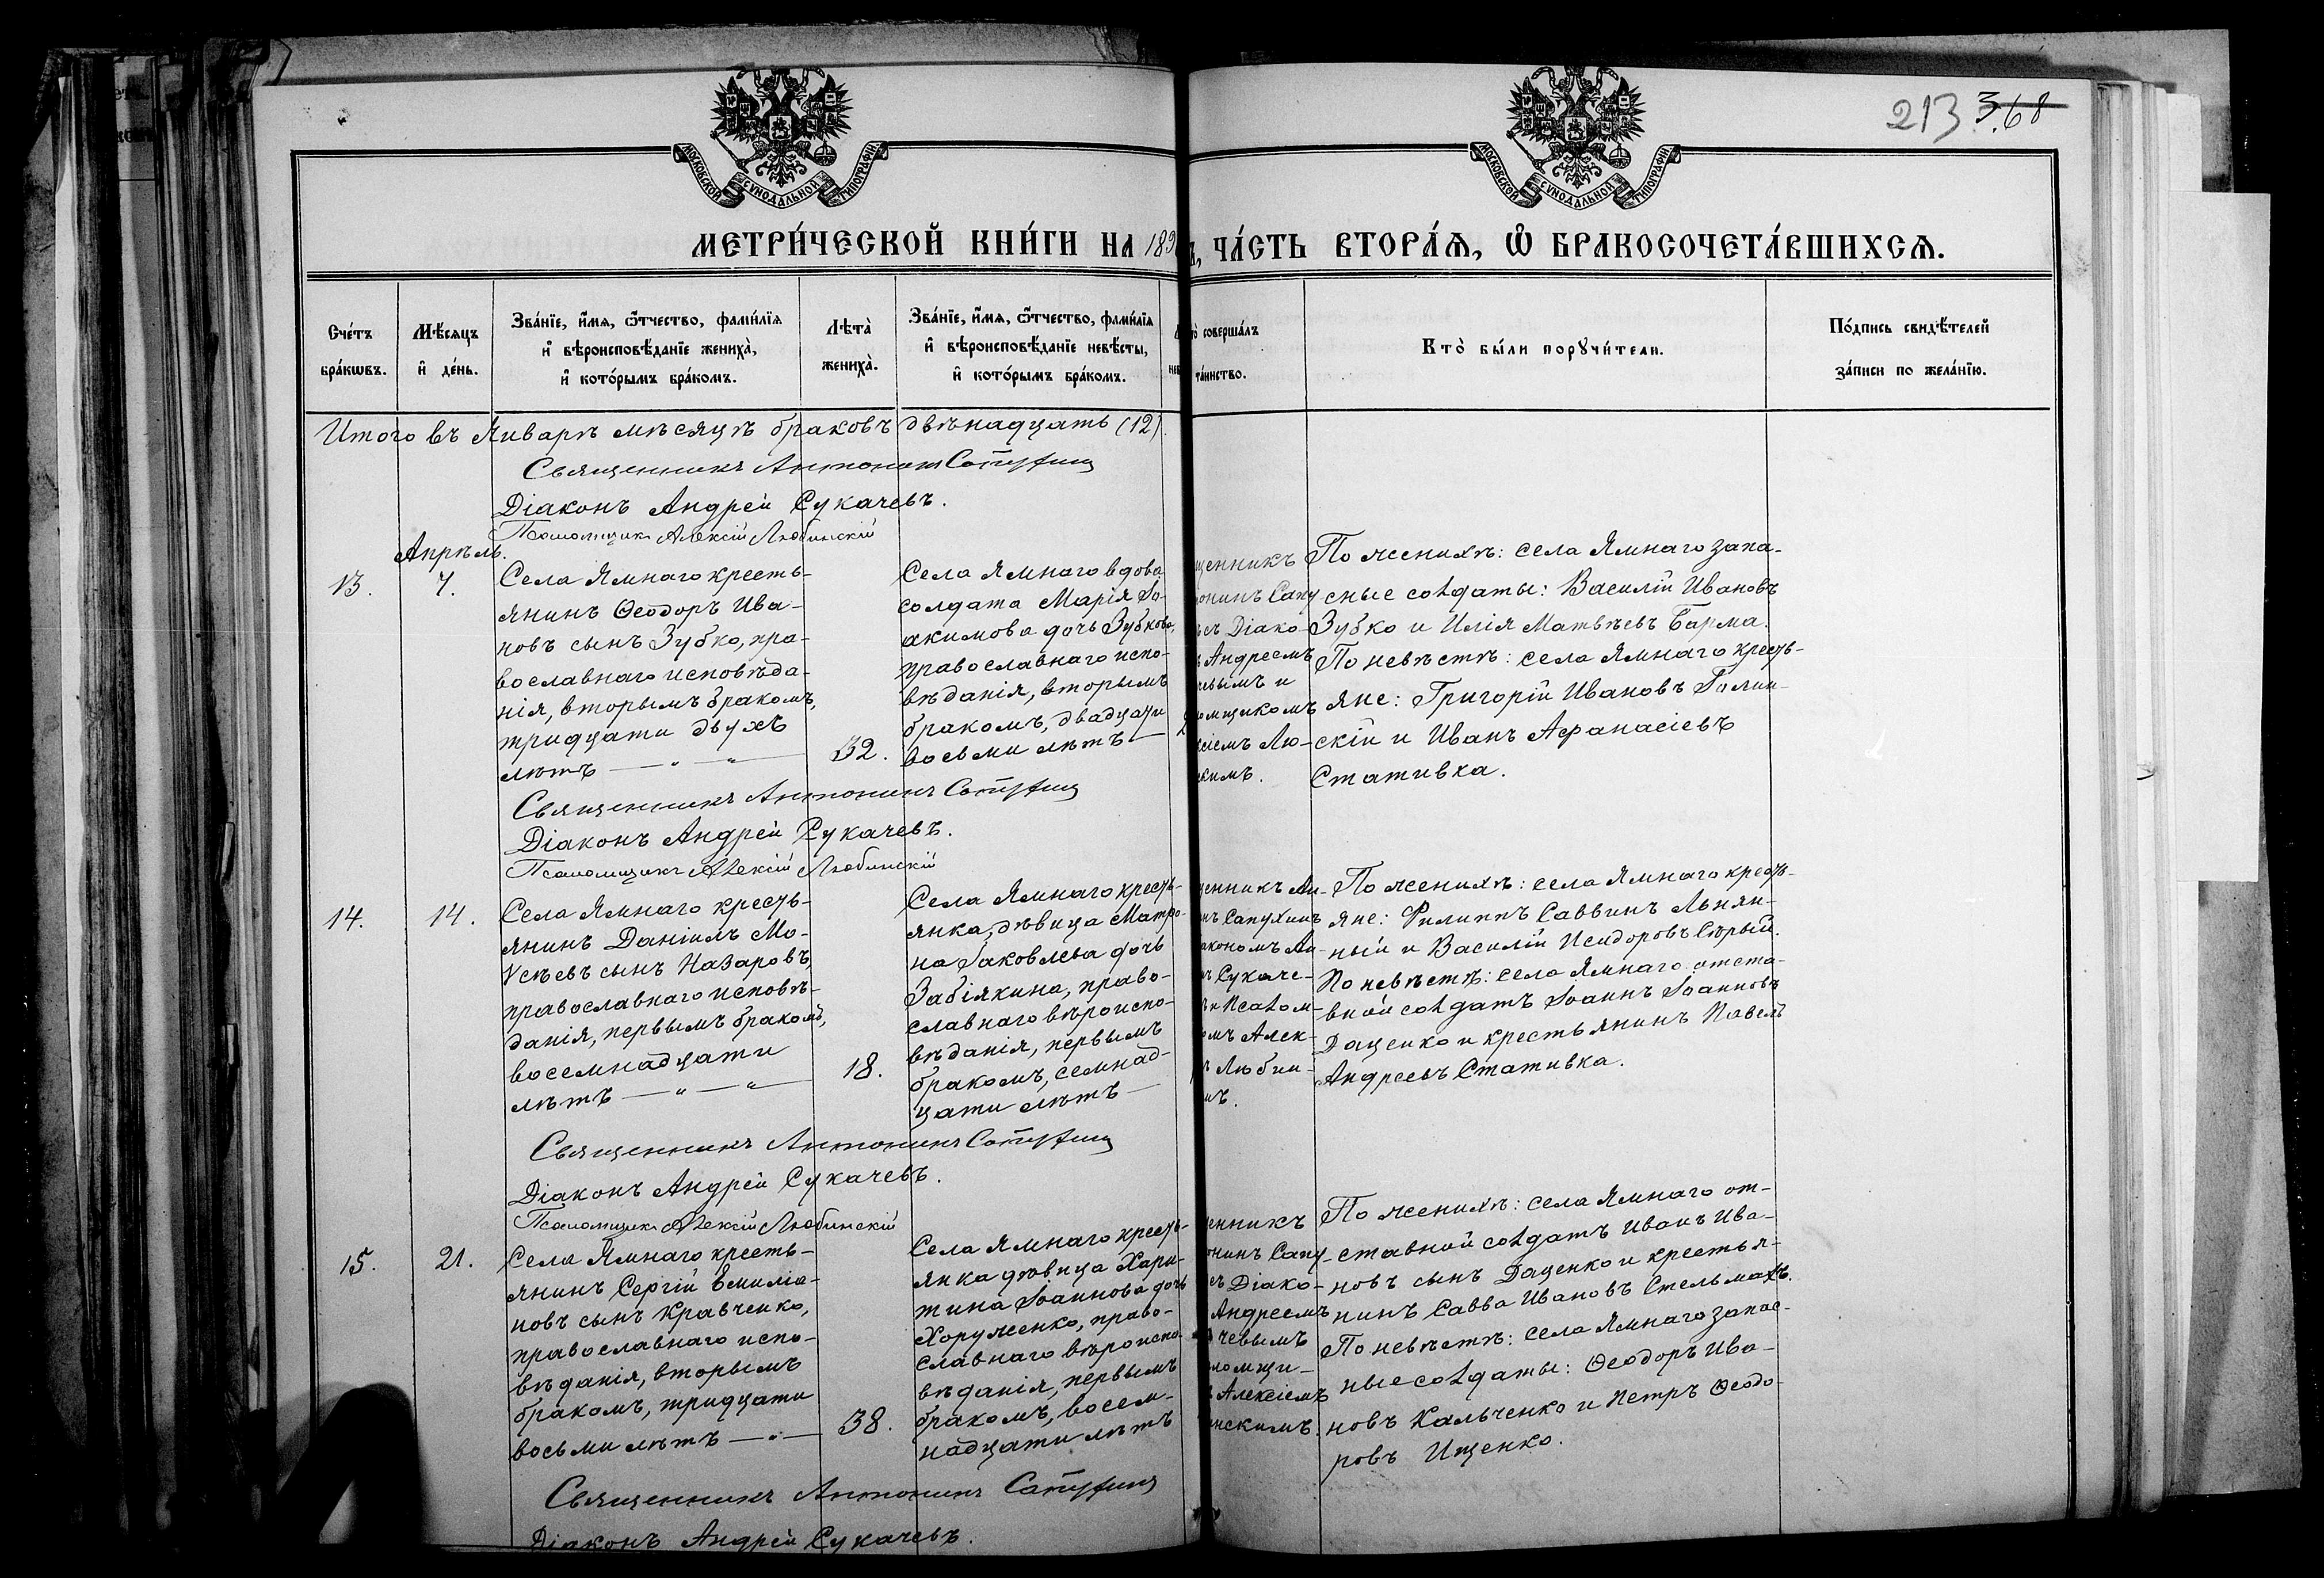 213 368
МОСКОВСКОЙ СѴНОДАЛЬНОЙ ТИПОГРАФІИ
МОСКОВСКОЙ СѴНОДАЛЬНОЙ ТИПОГРАФІИ
МЕТРИ́ЧЕСКОЙ КНИ́ГИ НА 189
ЧА́СТЬ ВТОРА́Ѧ, Ѽ БРАКОСОЧЕТА́ВШИХСѦ.
Сче́тъ
бра́кѡвъ.
Мѣ́сяцъ
и҆ де́нь.
Зва́нїе, и҆́мѧ, ѻ҆́тчество, фами́лїѧ
и҆ вѣроисповѣ́данїе жениха̀,
и҆ кото́рымъ бра́комъ.
Лѣта̀
жениха̀.
Зва́нїе, и҆́мѧ, ѻ҆́тчество, фами́лїѧ
и҆ вѣроисповѣ́данїе невѣ́сты,
и҆ кото́рымъ бра́комъ.
то̀ соверша́лъ
та́инство.
Кто̀ бы́ли порꙋчи́тели.
По́дпись свидѣ́телей
за́писи по жела́нїю.
Итого въ Январѣ мѣсяцѣ браковъ двѣнадцать (12).
Священникъ Антонинъ Сапухинъ
Діаконъ Андрей Сукачевъ.
Псаломщикъ Алексій Любинскій
Апрѣль.
13.
7.
Села Ямнаго кресть-
янинъ Ѳеодоръ Ива-
новъ сынъ Зубко, пра-
вославнаго исповѣда-
нія, вторымъ бракомъ,
тридцати двухъ
лѣтъ — „ — „ —
32.
Села Ямнаго вдова
солдата Марія Іо-
акимова дочь Зубкова,
православнаго испо-
вѣданія, вторымъ
бракомъ, двадцати
восьми лѣтъ —
щенникъ
онинъ Сапу-
съ Діако-
ъ Андреемъ
чевымъ и
ломщикомъ
ксіемъ Лю-
скимъ.
По женихѣ: села Ямнаго запа-
сные солдаты: Василій Ивановъ
Зубко и Илія Матвѣевъ Барма.
По невѣстѣ: села Ямнаго кресть-
яне: Григорій Ивановъ Голин-
скій и Иванъ Афанасіевъ
Стативка.
Священникъ Антонинъ Сапухинъ
Діаконъ Андрей Сукачевъ.
Псаломщикъ Алексій Любинскій
14.
14.
Села Ямнаго кресть-
янинъ Даніилъ Мо-
ѵсѣевъ сынъ Назаровъ,
православнаго исповѣ-
данія, первымъ бракомъ,
восемнадцати
лѣтъ — „ — „ —
18.
Села Ямнаго кресть-
янка, дѣвица Матро-
на Іаковлева дочь
Забіякина, право-
славнаго вѣроиспо-
вѣданія, первымъ
бракомъ, семнад-
цати лѣтъ —
щенникъ Ан-
нъ Сапухинъ
іакономъ Ан-
ъ Сукаче-
ъ и Псалом-
омъ Алек-
ъ Любин-
мъ.
По женихѣ: села Ямнаго кресть-
яне: Филиппъ Саввинъ Льнян-
ный и Василій Исидоровъ Сѣрый.
По невѣстѣ: села Ямнаго отста-
вной солдатъ Іоаннъ Іоанновъ
Даценко и крестьянинъ Павелъ
Андреевъ Стативка.
Священникъ Антонинъ Сапухинъ
Діаконъ Андрей Сукачевъ.
Псаломщикъ Алексій Любинскій
15.
21.
Села Ямнаго кресть-
янинъ Сергій Емиліа-
новъ сынъ Кравченко,
православнаго испо-
вѣданія, вторымъ
бракомъ, тридцати
восьми лѣтъ — „ —
38.
Села Ямнаго кресть-
янка дѣвица Хари-
тина Іоаннова дочь
Хоруженко, право-
славнаго вѣроиспо-
вѣданія, первымъ
бракомъ, восем-
надцати лѣтъ
щенникъ
онинъ Сапу-
съ Діако-
Андреемъ
чевымъ
ломщи-
ъ Алексіемъ
инскимъ.
По женихѣ: села Ямнаго от-
ставной солдатъ Иванъ Ива-
новъ сынъ Даценко и крестья-
нинъ Савва Ивановъ Стельмахъ.
По невѣстѣ: села Ямнаго запас-
ные солдаты: Ѳеодоръ Ива-
новъ Кальченко и Петръ Ѳеодо-
ровъ Ищенко.
Священникъ Антонинъ Сапухинъ
Діаконъ Андрей Сукачевъ.